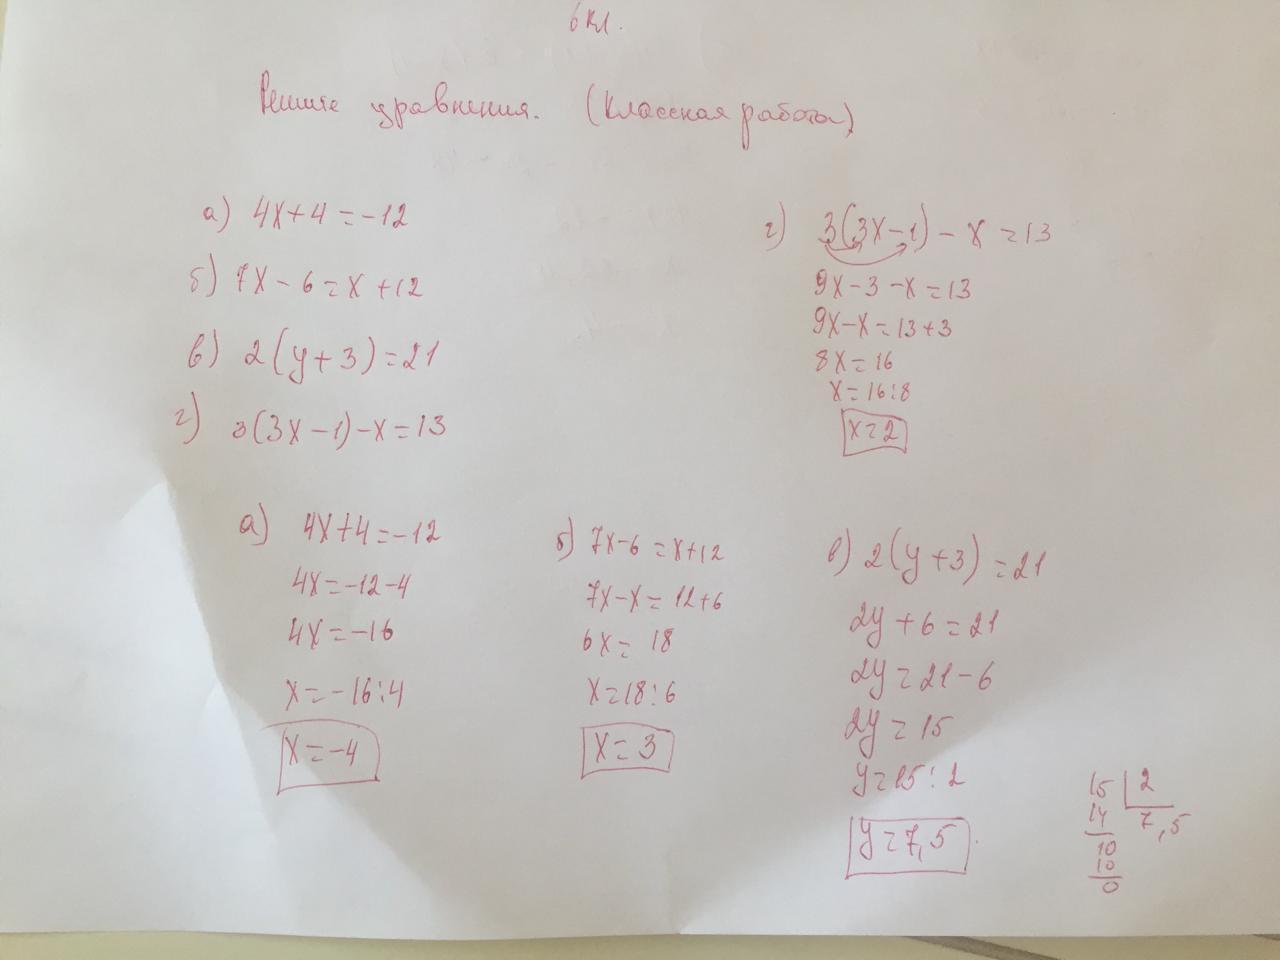 6 кл.
Решите уравнения. (Классная работа)
а) 4x+4=-12
б) 7x-6=x+12
в) 2(y+3)=21
г) 3(3x-1)-x=13
г) 3(3x-1)-x=13
9x-3-x=13
9x-x=13+3
8x=16
x=16:8
x=2
а) 4x+4=-12
4x=-12-4
4x=-16
x=-16:4
x=-4
б) 7x-6=x+12
7x-x=12+6
6x=18
x=18:6
x=3
в) 2(y+3)=21
2y+6=21
2y=21-6
2y=15
y=15:2
y=7,5
15 2
14 7,5
10
10
0